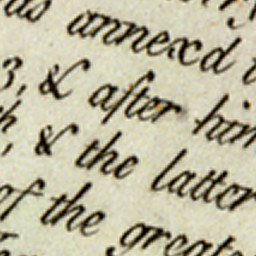 annexd
3, & after him
, & the latter
of the greate